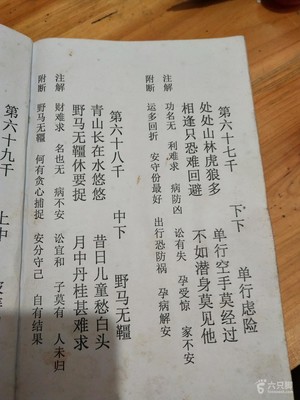 第六十七千 下下 单行虑险
处处山林虎狼多 单行空手莫经过
相逢只恐难回避 不如潜身莫见他
注解 功名无 利难求 病防凶 讼有失 孕受惊 家不安
附断 运多回折 安守份最好 出行恐防祸 孕病解安
第六十八千 中下 野马无疆
青山长在水悠悠 昔日儿童愁白头
野马无疆休要捉 月中丹桂甚难求
注解 财难求 名也无 病不安 讼宜和 子莫有 人未归
附断 野马无疆 何有贪心捕捉 安分守己 自有结果
第六十九千 上中
六只脚